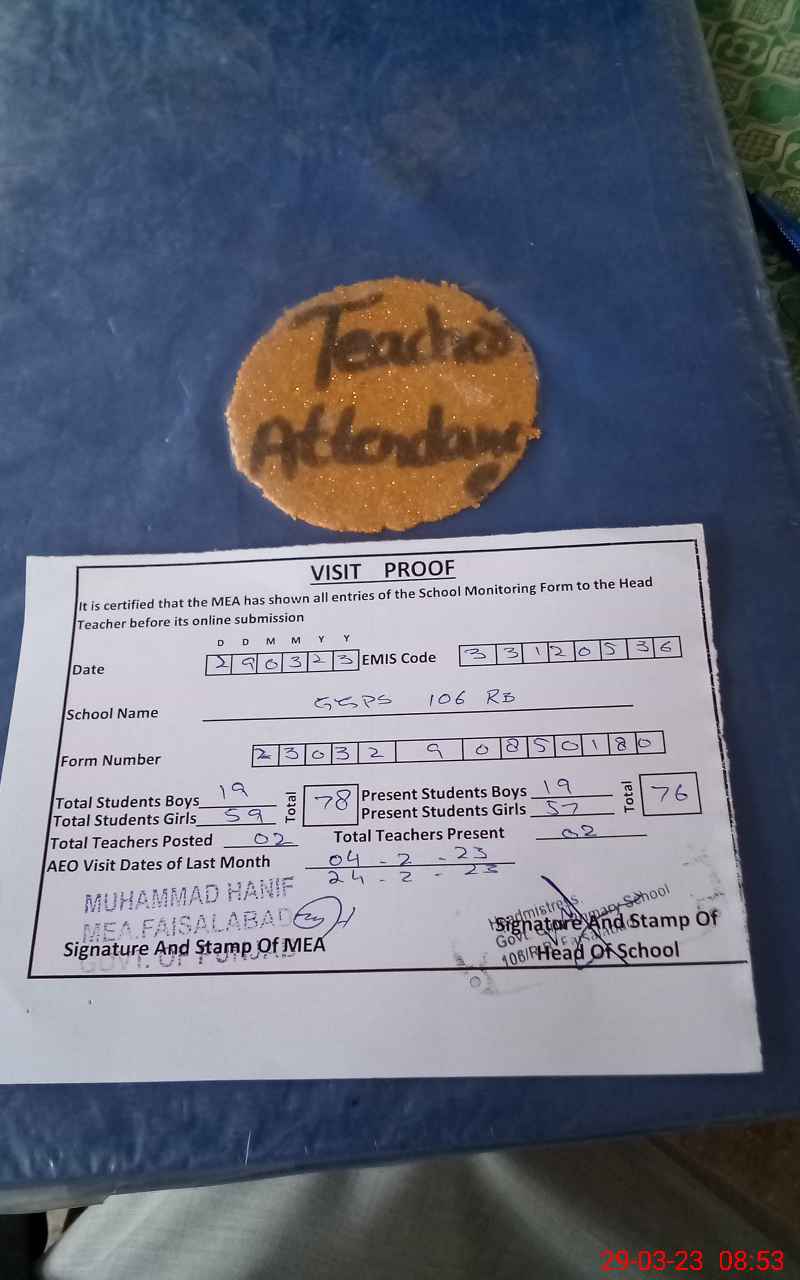 Teacher
Attendance
VISIT PROOF
It is certified that the MEA has shown all entries of the School Monitoring Form to the Head
Teacher before its online submission
D D M M Y Y
Date 290323 EMIS Code 33120536
School Name GGPS 106 RB
Form Number 2303290850180
Total Students Boys 19 Total 78 Present Students Boys 19 Total 76
Total Students Girls 59 Present Students Girls 57
Total Teachers Posted 02 Total Teachers Present 02
AEO Visit Dates of Last Month 04-2-23
24-2-23
MUHAMMAD HANIF
MEA.FAISALABAD
GOVT. OF PUNJAB
Signature And Stamp Of MEA
Headmistress
Govt. Primary School
106/R.B Faisalabad
Signature And Stamp Of
Head Of School
29-03-23 08:53